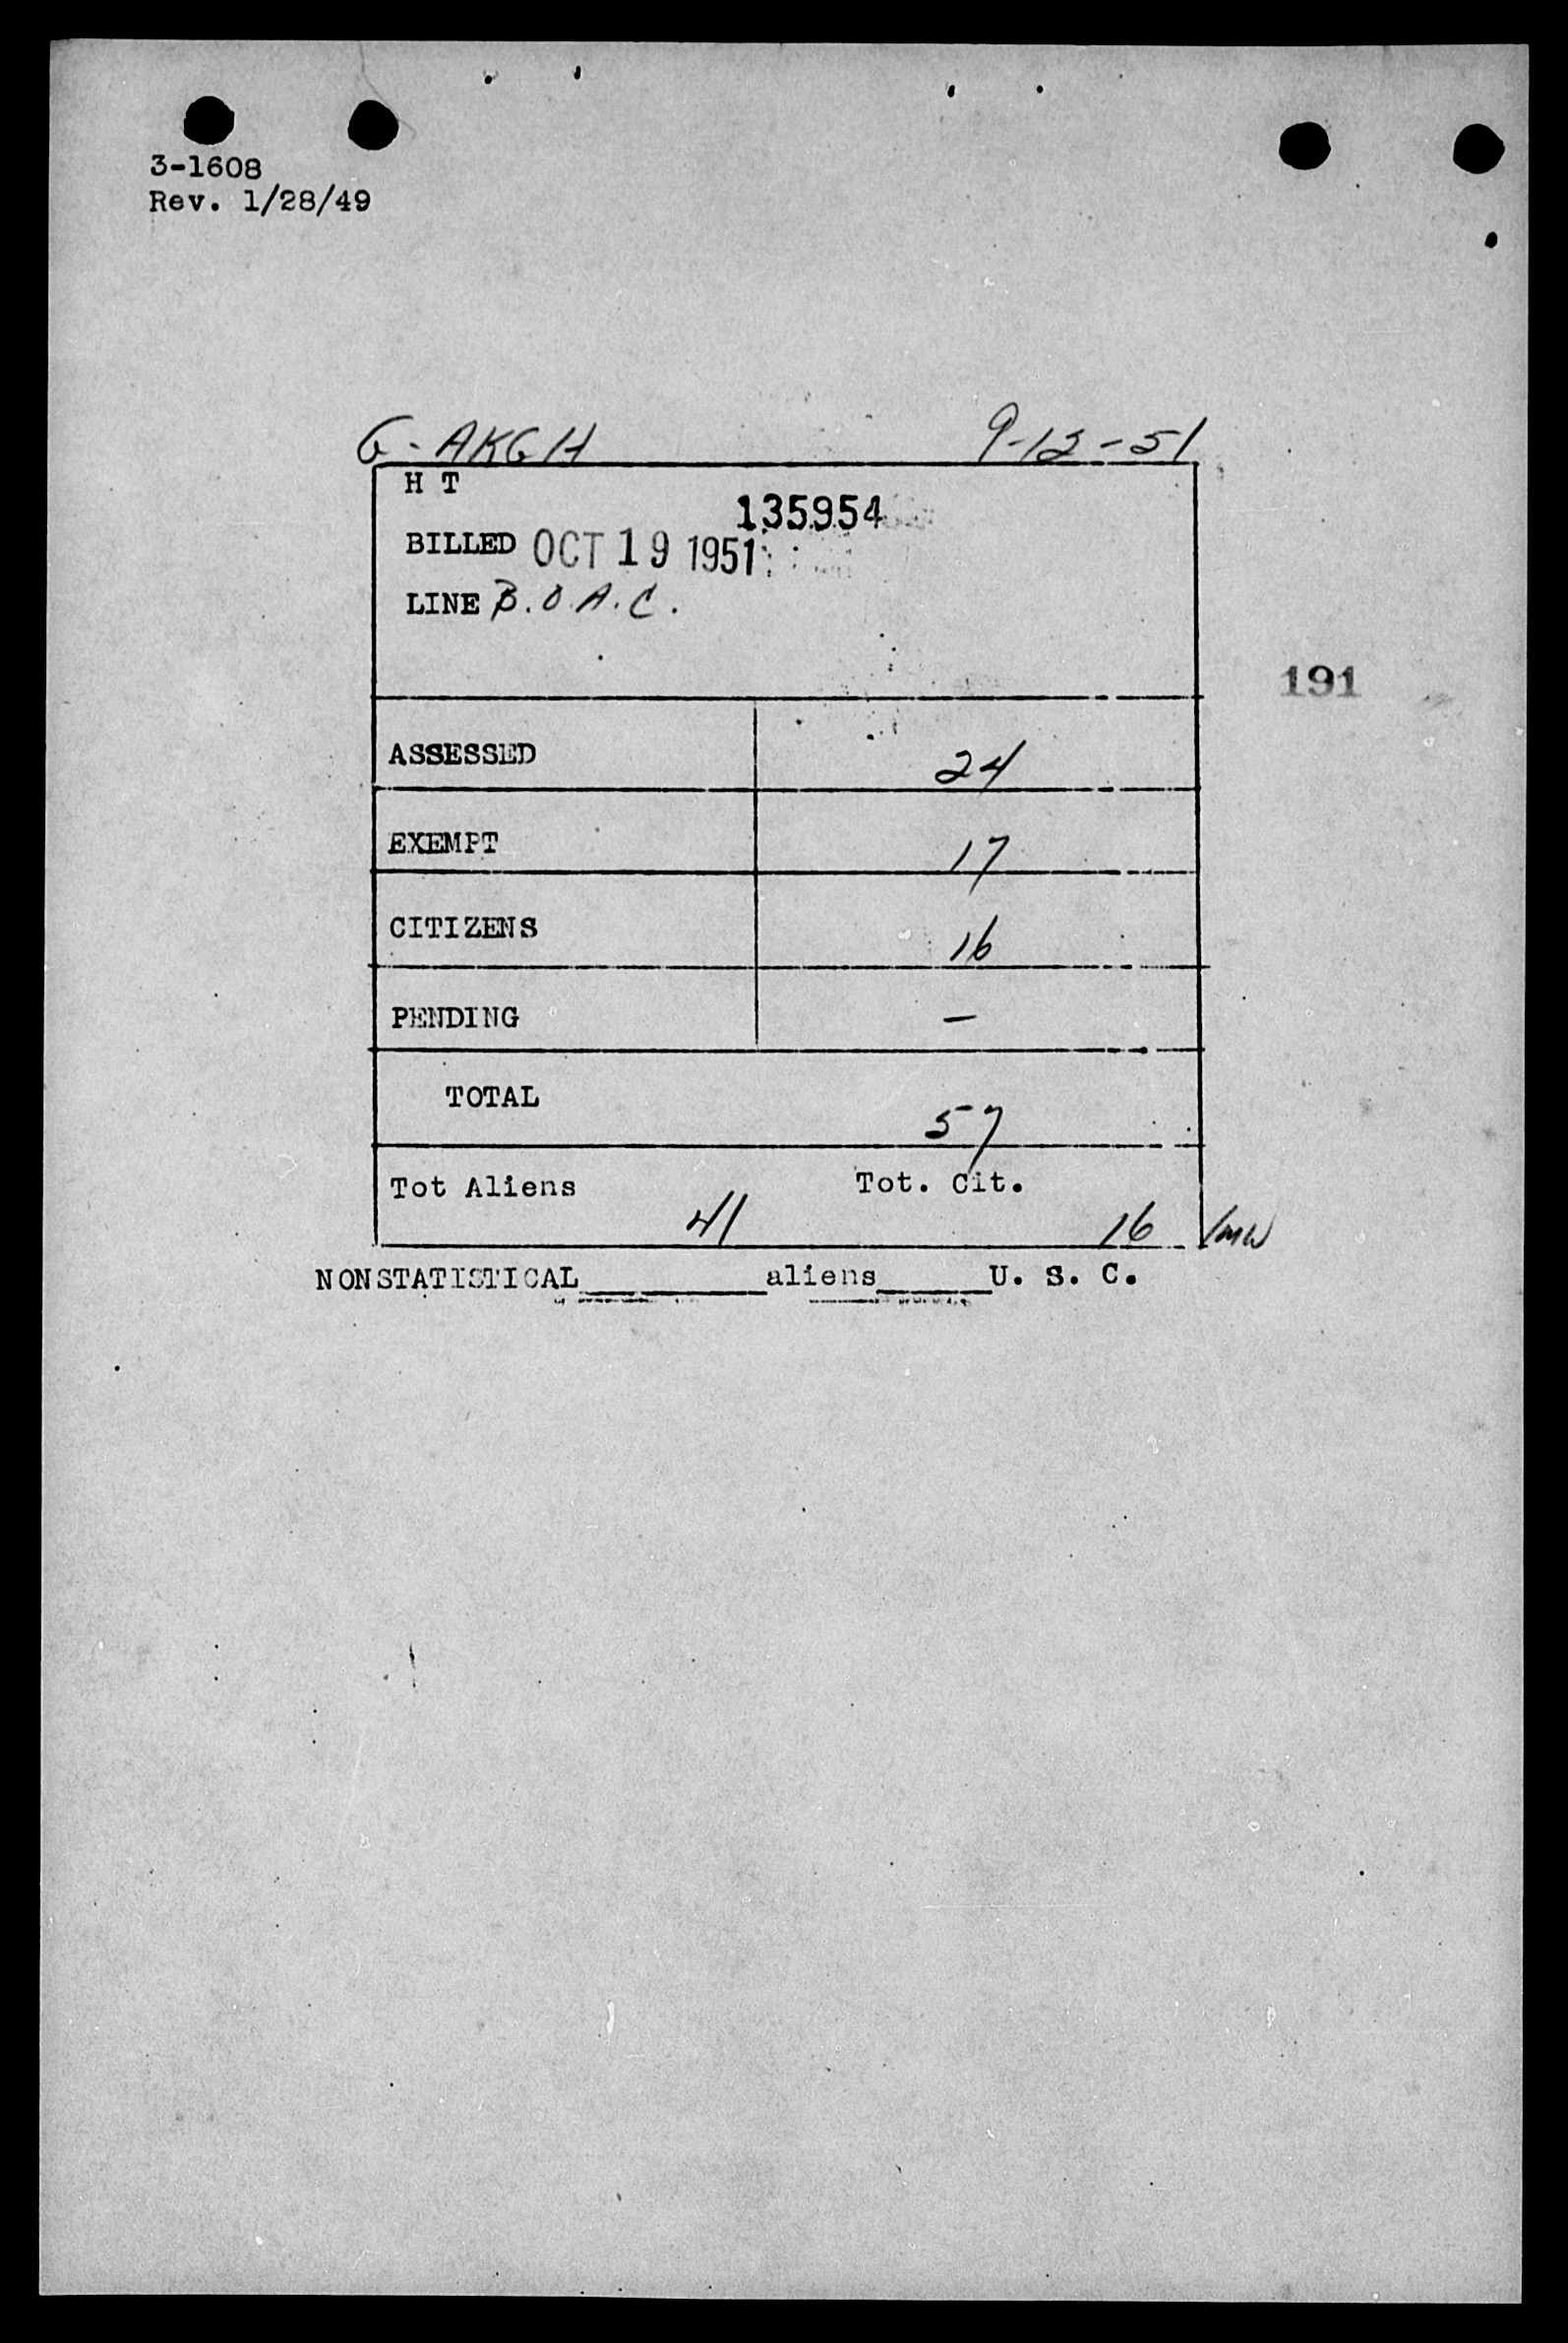 3-1608
Rev. 1/28/49
G-AKGH 9-12-51
H T
135954
BILLED OCT 19 1951
LINE B.O.A.C.
191
ASSESSED 24
EXEMPT 17
CITIZENS 16
PENDING —
TOTAL 57
Tot Aliens 41 Tot. Cit. 16 /mw
NONSTATISTICAL________aliens_____U. S. C.